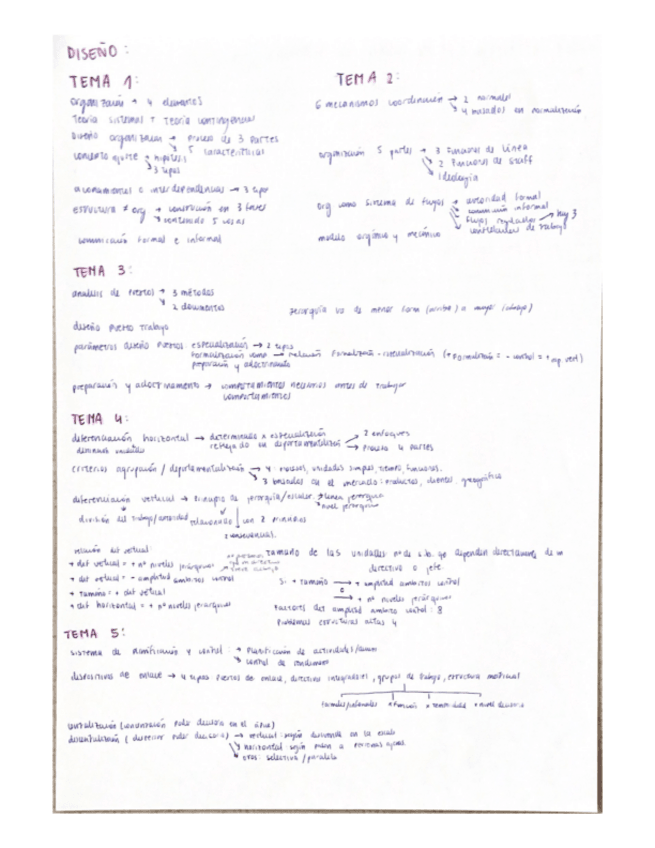 DISEÑO:
TEMA 1:
organización → 4 elementos
Teoría sistemas + Teoría contingencias
Diseño organización → proceso de 3 partes
↘ 5 características
concepto ajuste → hipótesis
↘ 3 tipos
acoplamientos o interdependencias → 3 tipos
estructura ≠ org → construcción en 3 fases
↘ contenido 5 cosas
comunicación formal e informal
TEMA 2:
6 mecanismos coordinación → 2 normales
↘ 4 basados en normalización
organización 5 partes → 3 funciones de línea
↘ 2 funciones de staff
↘ Ideología
org como sistema de flujos → autoridad formal
↘ comunicación informal
↘ flujos regulados → hay 3
↘ constelaciones de trabajo
modelo orgánico y mecánico
TEMA 3:
análisis de puestos → 3 métodos
↘ 2 documentos
jerarquía va de menor forma a mayor (trabajo)
diseño puesto trabajo
parámetros diseño puestos: especialización → 2 tipos
formalización → relación formalización - especialización (+ formalizac = - control = + esp vert)
preparación y adoctrinamiento
preparación y adoctrinamiento → comportamientos necesarios antes de trabajar
comportamientos
TEMA 4:
diferenciación horizontal → determinada x especialización
reflejado en departamentalización → 2 enfoques
↘ Proceso 4 partes
distintas unidades
criterios agrupación / departamentalización → 4: procesos, unidades simples, tiempo, funciones.
↘ 3 basadas en el mercado: productos, clientes, geográfica
diferenciación vertical → principio de jerarquía/escalar. → línea jerárquica
↘ nivel jerárquico
división del trabajo/autoridad relacionado con 2 principios
2 consecuencias.
relación dif vertical:
+ dif vertical = + nº niveles jerárquicos
+ dif vertical = - amplitud ámbitos control
+ tamaño = + dif vertical
+ dif horizontal = + nº niveles jerárquicos
tamaño de las unidades: nº de sub. que dependen directamente de un
directivo o jefe
Si + tamaño → + amplitud ámbitos control
o
→ + nº niveles jerárquicos
Factores det amplitud ámbito control: 8
Problemas estructuras altas 4
TEMA 5:
sistema de planificación y control: → Planificación de actividades/acciones
↘ control de rendimiento
dispositivos de enlace → 4 tipos: puestos de enlace, directivo integradores, grupos de trabajo, estructura matricial
formales/informales x función x temporalidad x nivel decisorio
centralización (concentración poder decisorio en el ápice)
descentralización (dispersión poder decisorio) → vertical: según descienda en la escala
↘ horizontal según pasen a personas ajenas
↘ otros: selectiva / paralela